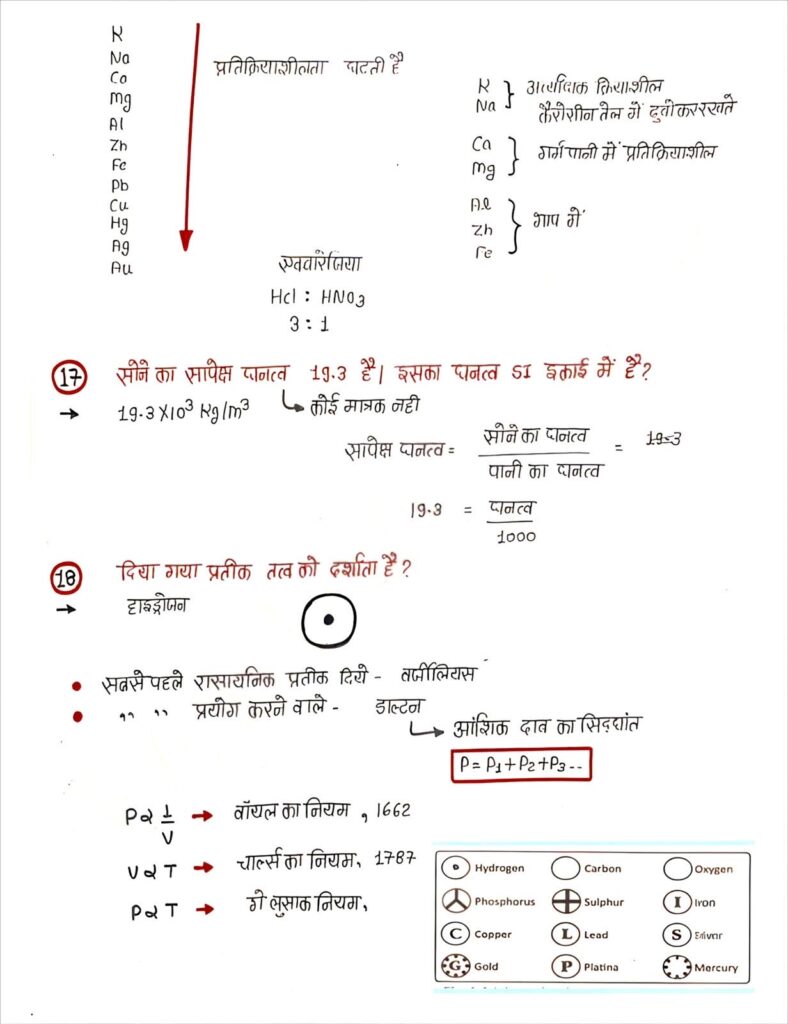 K
Na
Ca
Mg
Al
Zn
Fe
Pb
Cu
Hg
Ag
Au
प्रतिक्रियाशीलता घटती है
K
Na
अत्यधिक क्रियाशील
कैरोसीन तेल में डुबोकर रखते
Ca
Mg
गर्म पानी में प्रतिक्रियाशील
Al
Zn
Fe
भाप में
एक्वारेजिया
HCl : HNO3
3 : 1
17 सोने का सापेक्ष घनत्व 19.3 है। इसका घनत्व SI इकाई में है?
→ 19.3 X10³ Kg/m³ कोई मात्रक नही
सापेक्ष घनत्व = सोने का घनत्व / पानी का घनत्व = 19.3
19.3 = घनत्व / 1000
18 दिया गया प्रतीक तत्व को दर्शाता है?
→ हाइड्रोजन
• सबसे पहले रासायनिक प्रतीक दिये - बर्जीलियस
• ,, ,, प्रयोग करने वाले - डाल्टन
आंशिक दाब का सिद्धांत
P = P1 + P2 + P3 --
P∝ 1/V → बॉयल का नियम , 1662
V∝T → चार्ल्स का नियम, 1787
P∝T → गे लुसाक नियम,
Hydrogen Carbon Oxygen
Phosphorus Sulphur I Iron
C Copper L Lead S Silver
G Gold P Platina Mercury